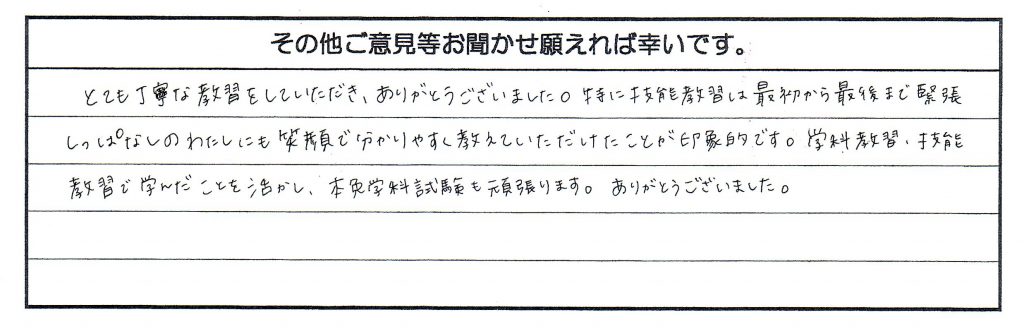 その他ご意見等お聞かせ願えれば幸いです。
とても丁寧な教習をしていただき、ありがとうございました。特に技能教習は最初から最後まで緊張
しっぱなしのわたしにも笑顔で分かりやすく教えていただけたことが印象的です。学科教習、技能
教習で学んだことを活かし、本免学科試験も頑張ります。ありがとうございました。